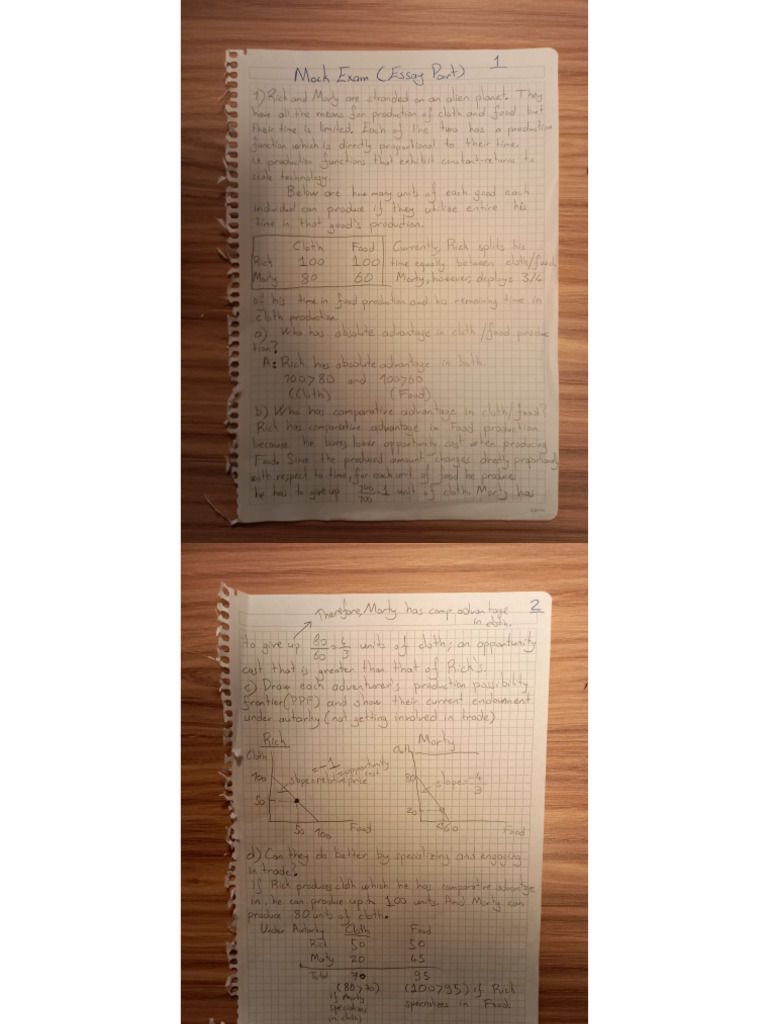 1
Mock Exam (Essay Part)
1) Rick and Morty are stranded on an alien planet. They
have all the means for production of cloth and food but
their time is limited. Each of the two has a production
function which is directly proportional to their time.
i.e production functions that exhibit constant-returns to
scale technology.
Below are how many units of each good each
individual can produce if they utilize entire his
time in that good's production.
Cloth Food
Rick 100 100
Morty 80 60
Currently, Rick splits his
time equally between cloth/food
Morty, however, deploys 3/4
of his time in food production and his remaining time in
cloth production
a) Who has absolute advantage in cloth/food produc
tion?
A: Rick has absolute advantage in both.
100>80 and 100>60
(Cloth) (Food)
b) Who has comparative advantage in cloth/food?
Rick has comparative advantage in Food production
because he bares lower opportunity cost when producing
Food. Since the produced amount changes directly proportionally
with respect to time, for each unit of food he produces
he has to give up 100/100=1 unit of cloth. Morty has
2
Therefore, Morty has comp. advantage
in cloth.
to give up 80/60=4/3 units of cloth; an opportunity
cost that is greater than that of Rick's.
c) Draw each adventurer's production possibility
frontier(PPF) and show their current endowment
under autarky (not getting involved in trade)
Rick
Cloth
100
50
50 100 Food
slope=relative price
=-1
=opportunity
cost
Morty
Cloth
80
20
45 60 Food
slope=-4/3
d) Can they do better by specializing and engaging
in trade?
If Rick produces cloth which he has comparative advantage
in, he can produce up to 100 units. And Morty can
produce 80 units of cloth.
Under Autarky Cloth Food
Rick 50 50
Morty 20 45
Total 70 95
(80>70) (100>95) if Rick
if Morty specializes in Food.
specializes
in cloth)